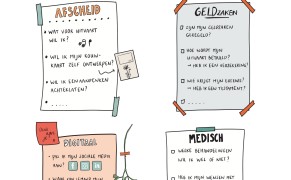 AFSCHEID
WAT VOOR UITVAART
WIL IK?
WIL IK MIJN ROUW-
KAART ZELF ONTWERPEN?
WIL IK EEN AANDENKEN
ACHTERLATEN?
......
GELDZAKEN
ZIJN MIJN GELDZAKEN
GEREGELD?
HOE WORDT MIJN
UITVAART BETAALD?
→ HEB IK EEN VERZEKERING?
WIE KRIJGT MIJN
→ HEB IK EEN TESTAMENT?
......
DIGITAAL
MIJN SOCIALE MEDIA
MEDISCH
WELKE BEHANDELINGEN
WIL IK WEL OF NIET?
HEB IK MIJN WENSEN MET